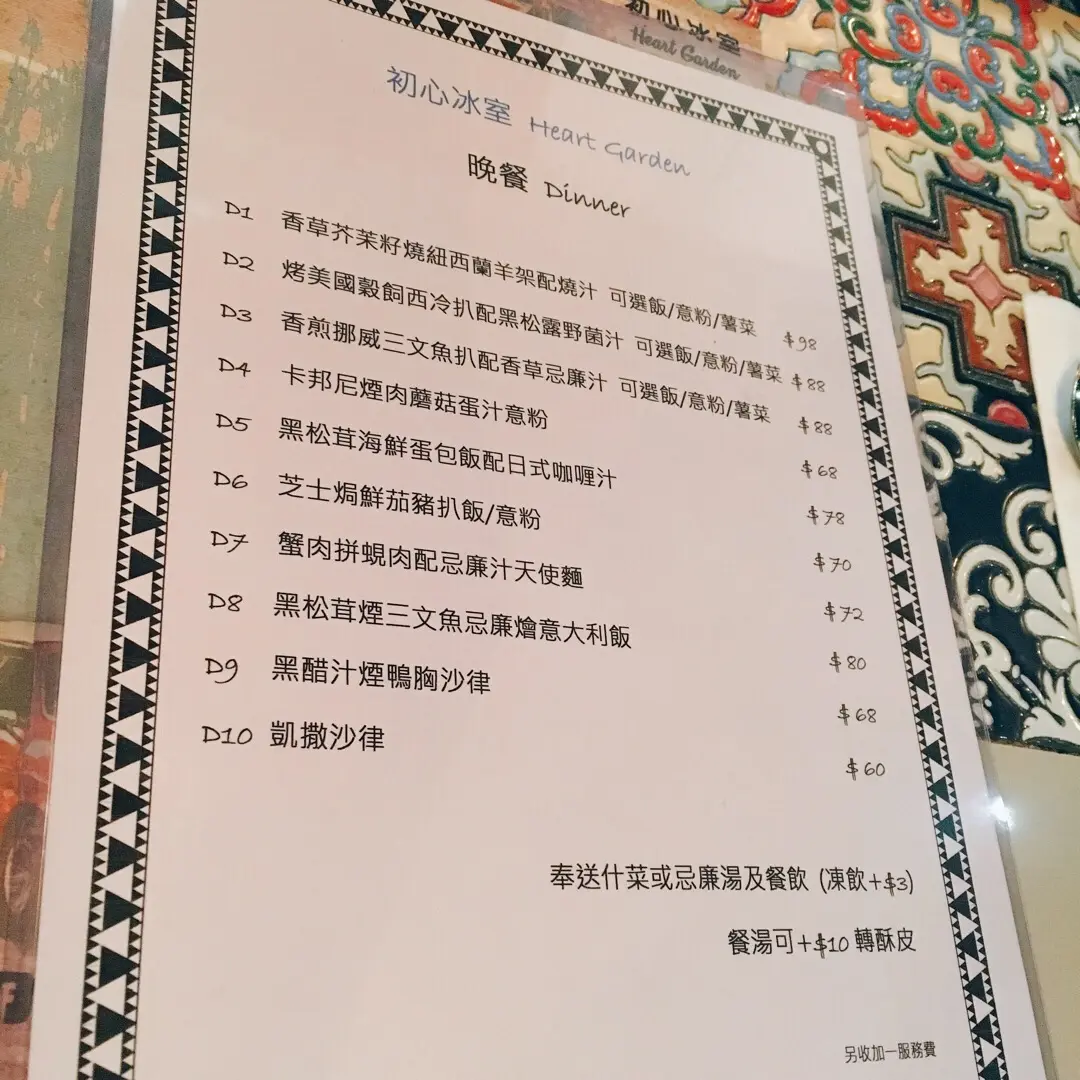 初心冰室
Heart Garden
初心冰室 Heart Garden
晚餐 Dinner
D1 香草芥茉籽燒紐西蘭羊架配燒汁 可選飯/意粉/薯菜 $98
D2 烤美國穀飼西冷扒配黑松露野菌汁 可選飯/意粉/薯菜 $88
D3 香煎挪威三文魚扒配香草忌廉汁 可選飯/意粉/薯菜 $88
D4 卡邦尼煙肉蘑菇蛋汁意粉 $68
D5 黑松茸海鮮蛋包飯配日式咖喱汁 $78
D6 芝士焗鮮茄豬扒飯/意粉 $70
D7 蟹肉拼蜆肉配忌廉汁天使麵 $72
D8 黑松茸煙三文魚忌廉燴意大利飯 $80
D9 黑醋汁煙鴨胸沙律 $68
D10 凱撒沙律 $60
奉送什菜或忌廉湯及餐飲 (凍飲+$3)
餐湯可+$10 轉酥皮
另收加一服務費